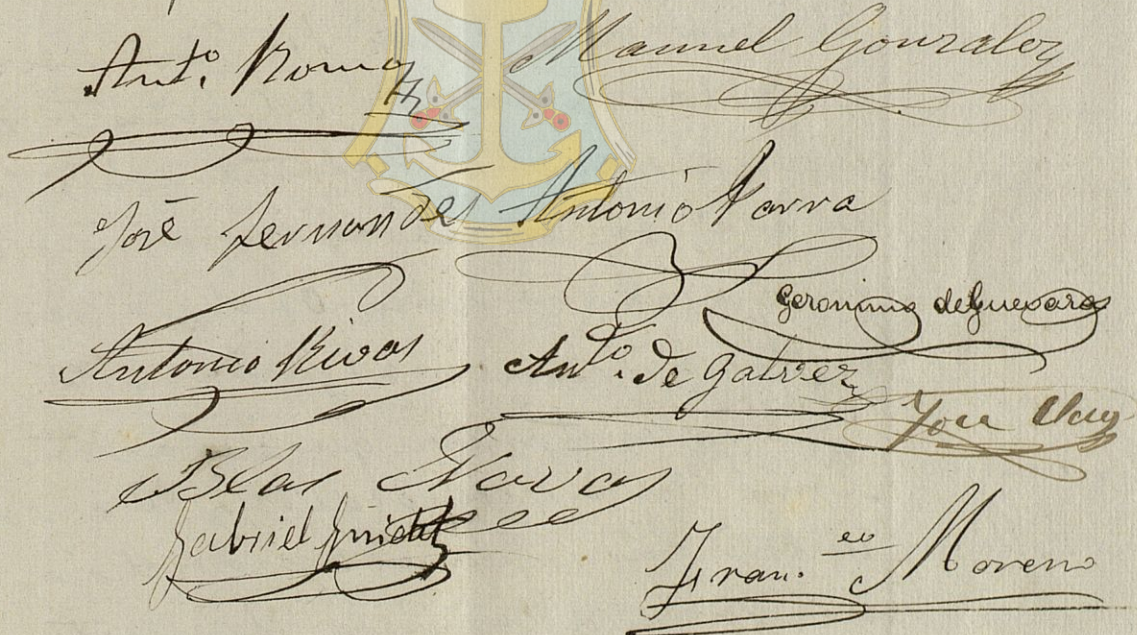 Antº. Roma
Manuel Gonzalez
José fernandes
Antonio Parra
Geronimo de Guevara
Antonio Rivas
Antº. de Galvez
José
Blas Navas
Gabriel
Franco. Moreno